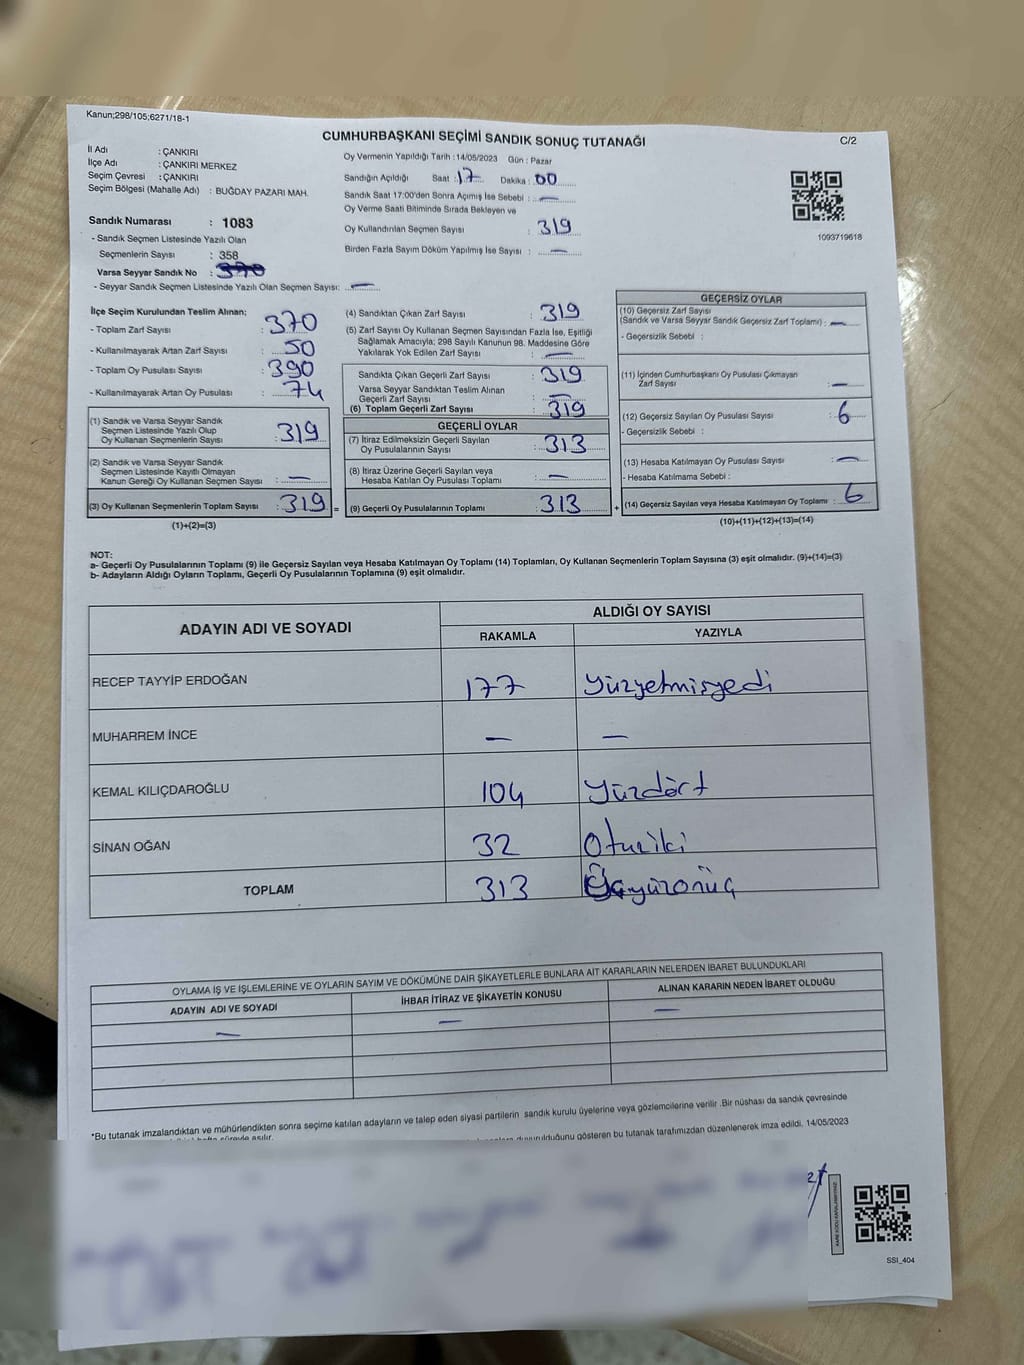 Kanun;298/105;6271/18-1
CUMHURBAŞKANI SEÇİMİ SANDIK SONUÇ TUTANAĞI
C/2
İl Adı : ÇANKIRI
İlçe Adı : ÇANKIRI MERKEZ
Seçim Çevresi : ÇANKIRI
Seçim Bölgesi (Mahalle Adı) : BUĞDAY PAZARI MAH.
Sandık Numarası : 1083
- Sandık Seçmen Listesinde Yazılı Olan
Seçmenlerin Sayısı : 358
Varsa Seyyar Sandık No :
- Seyyar Sandık Seçmen Listesinde Yazılı Olan Seçmen Sayısı: —
Oy Vermenin Yapıldığı Tarih :14/05/2023 Gün : Pazar
Sandığın Açıldığı Saat : 17 Dakika : 00
Sandık Saat 17:00'den Sonra Açımış İse Sebebi : —
Oy Verme Saati Bitiminde Sırada Bekleyen ve
Oy Kullandırılan Seçmen Sayısı : 319
Birden Fazla Sayım Döküm Yapılmış İse Sayısı : —
1093719618
İlçe Seçim Kurulundan Teslim Alınan:
- Toplam Zarf Sayısı : 370
- Kullanılmayarak Artan Zarf Sayısı : 50
- Toplam Oy Pusulası Sayısı : 390
- Kullanılmayarak Artan Oy Pusulası : 74
(1) Sandık ve Varsa Seyyar Sandık
Seçmen Listesinde Yazılı Olup
Oy Kullanan Seçmenlerin Sayısı : 319
(2) Sandık ve Varsa Seyyar Sandık
Seçmen Listesinde Kayıtlı Olmayan
Kanun Gereği Oy Kullanan Seçmen Sayısı : —
(3) Oy Kullanan Seçmenlerin Toplam Sayısı : 319 =
(1)+(2)=(3)
(4) Sandıktan Çıkan Zarf Sayısı : 319
(5) Zarf Sayısı Oy Kullanan Seçmen Sayısından Fazla İse, Eşitliği
Sağlamak Amacıyla; 298 Sayılı Kanunun 98. Maddesine Göre
Yakılarak Yok Edilen Zarf Sayısı : —
Sandıkta Çıkan Geçerli Zarf Sayısı : 319
Varsa Seyyar Sandıktan Teslim Alınan
Geçerli Zarf Sayısı : —
(6) Toplam Geçerli Zarf Sayısı : 319
GEÇERLİ OYLAR
(7) İtiraz Edilmeksizin Geçerli Sayılan
Oy Pusulalarının Sayısı : 313
(8) İtiraz Üzerine Geçerli Sayılan veya
Hesaba Katılan Oy Pusulası Toplamı : —
(9) Geçerli Oy Pusulalarının Toplamı : 313 +
GEÇERSİZ OYLAR
(10) Geçersiz Zarf Sayısı
(Sandık ve Varsa Seyyar Sandık Geçersiz Zarf Toplamı) : —
- Geçersizlik Sebebi :
(11) İçinden Cumhurbaşkanı Oy Pusulası Çıkmayan
Zarf Sayısı : —
(12) Geçersiz Sayılan Oy Pusulası Sayısı : 6
- Geçersizlik Sebebi :
(13) Hesaba Katılmayan Oy Pusulası Sayısı : —
- Hesaba Katılmama Sebebi :
(14) Geçersiz Sayılan veya Hesaba Katılmayan Oy Toplamı : 6
(10)+(11)+(12)+(13)=(14)
NOT:
a- Geçerli Oy Pusulalarının Toplamı (9) ile Geçersiz Sayılan veya Hesaba Katılmayan Oy Toplamı (14) Toplamları, Oy Kullanan Seçmenlerin Toplam Sayısına (3) eşit olmalıdır. (9)+(14)=(3)
b- Adayların Aldığı Oyların Toplamı, Geçerli Oy Pusulalarının Toplamına (9) eşit olmalıdır.
ADAYIN ADI VE SOYADI
ALDIĞI OY SAYISI
RAKAMLA YAZIYLA
RECEP TAYYİP ERDOĞAN 177 yüzyetmişyedi
MUHARREM İNCE — —
KEMAL KILIÇDAROĞLU 104 yüzdört
SİNAN OĞAN 32 Otuziki
TOPLAM 313 Üçyüzonüç
OYLAMA İŞ VE İŞLEMLERİNE VE OYLARIN SAYIM VE DÖKÜMÜNE DAİR ŞİKAYETLERLE BUNLARA AİT KARARLARIN NELERDEN İBARET BULUNDUKLARI
ADAYIN ADI VE SOYADI İHBAR İTİRAZ VE ŞİKAYETİN KONUSU ALINAN KARARIN NEDEN İBARET OLDUĞU
— — —
*Bu tutanak imzalandıktan ve mühürlendikten sonra seçime katılan adayların ve talep eden siyasi partilerin sandık kurulu üyelerine veya gözlemcilerine verilir .Bir nüshası da sandık çevresinde
hafta süreyle asılır.
duyurulduğunu gösteren bu tutanak tarafımızdan düzenlenerek imza edildi. 14/05/2023
SSI_404